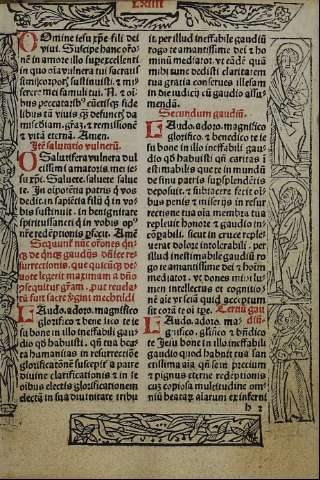 Lxiiii
O Domine iesu xp̄e fili dei
viui. Suscipe hanc oro⸗
nē in amore illo supexcellenti
in quo oīa vulnera tui sacratis
simi corpor͛, sustinuisti. ⁊ mi
serere mei famuli tui. N. ⁊ oī
bus peccatorib⁹ cūctisq; fide
libus tā viuis q̄ defunct͛, da
misc̄diam, grām, ⁊ remissionē
⁊ vitā eternā. Amen.
Itē salutatio vulnerū.
O Salutifera vulnera dul
cissimi amatoris mei ie⸗
su xp̄e. Saluete, saluete salue
te. In oīpotētia patris q̄ vos
dedit. in sapiētia filij q̄ in vo
bis sustinuit. in benignitate
spiritussancti q̄ in vobis op⁹
nr̄e redēptionis ꝑfecit. Amē
Sequunt̄ nūc orōnes q̄nq;
de q̄nq; gaudijs dn̄ice re⸗
surrectionis. que quicūq; de⸗
uote legerit maximam a dn̄o
ꝯsequitur gram. put reuela⸗
tū fuit sacre v̄gini mechtildi
Laudo. adoro. magnifico
glorifico ⁊ bene dico te ie
su bone in illo ineffabili gau⸗
dio q̄d habuisti. qn̄ tua bea
ta humanitas in resurrectiōe
glorificatōnē suscepit a patre
diuine clarificationis ⁊ in se
oibus electis glorificationem
electā in sua diuinitate tribu
it. per illud ineffabile gaudiū
rogo te amantissime dei ⁊ ho
minū mediator. vt eādē quā
mihi tunc dedisti claritatem
tua gratia conserues illesam
in die iudicij cū gaudio assu⸗
mendā.
Secundum gaudiū.
Laudo, adoro. magnifico
glorifico. ⁊ benedico te ie
su bone in illo ineffabili gau
dio q̄d habuisti qn̄ caritas ī
estimabilis que te in mundū
de sinu patris supsplendētis
deposuit. ⁊ subiacere fecit oī⸗
bus penis ⁊ miserijs in resur
rectione tua oīa membra tua
repleuit honore ⁊ gaudio in⸗
cōpabili. sicut in cruce reple⸗
uerat dolore intolerabili. per
illud inestimabile gaudiū ro
go te amantissime dei ⁊ hoīm
mediator. vt dones mihi lu⸗
men intellectus et cognitio⸗
nē aīe vt sciā quid acceptum
sit corā te oī tp̄e.
Tertiū gau
diū.
Laudo. adoro. ma⸗
gnifico. glifico ⁊ bn̄dico
te Jesu bone in illo ineffabili
gaudio quod habuit tua san
ctissima aīa. qn̄ seip̄ precium
⁊ pignus eterne redēptionis
eius copiosa multitudine om
niū beataꝝ aīarum ex inferni
h 2